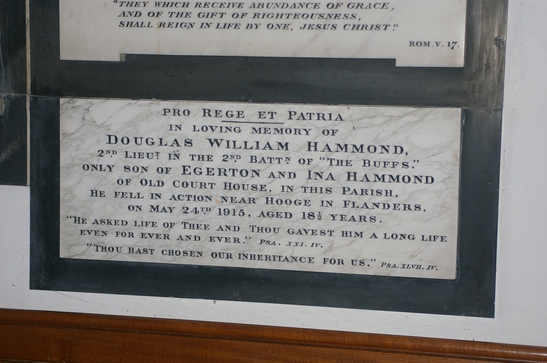 "THEY WHICH RECEIVE ABUNDANCE OF GRACE,
AND OF THE GIFT OF RIGHTEOUSNESS,
SHALL REIGN IN LIFE BY ONE, JESUS CHRIST."
ROM. V. 17.
PRO REGE ET PATRIA
IN LOVING MEMORY OF
DOUGLAS WILLIAM HAMMOND,
2ND LIEUT IN THE 2ND BATTN OF "THE BUFFS."
ONLY SON OF EGERTON AND INA HAMMOND
OF OLD COURT HOUSE, IN THIS PARISH,
HE FELL IN ACTION NEAR HOOGE IN FLANDERS,
ON MAY 24TH 1915, AGED 18½ YEARS.
"HE ASKED LIFE OF THEE AND THOU GAVEST HIM A LONG LIFE
EVEN FOR EVER AND EVER." PSA. XXI. IV.
"THOU HAST CHOSEN OUR INHERITANCE FOR US." PSA. XLVII. IV.